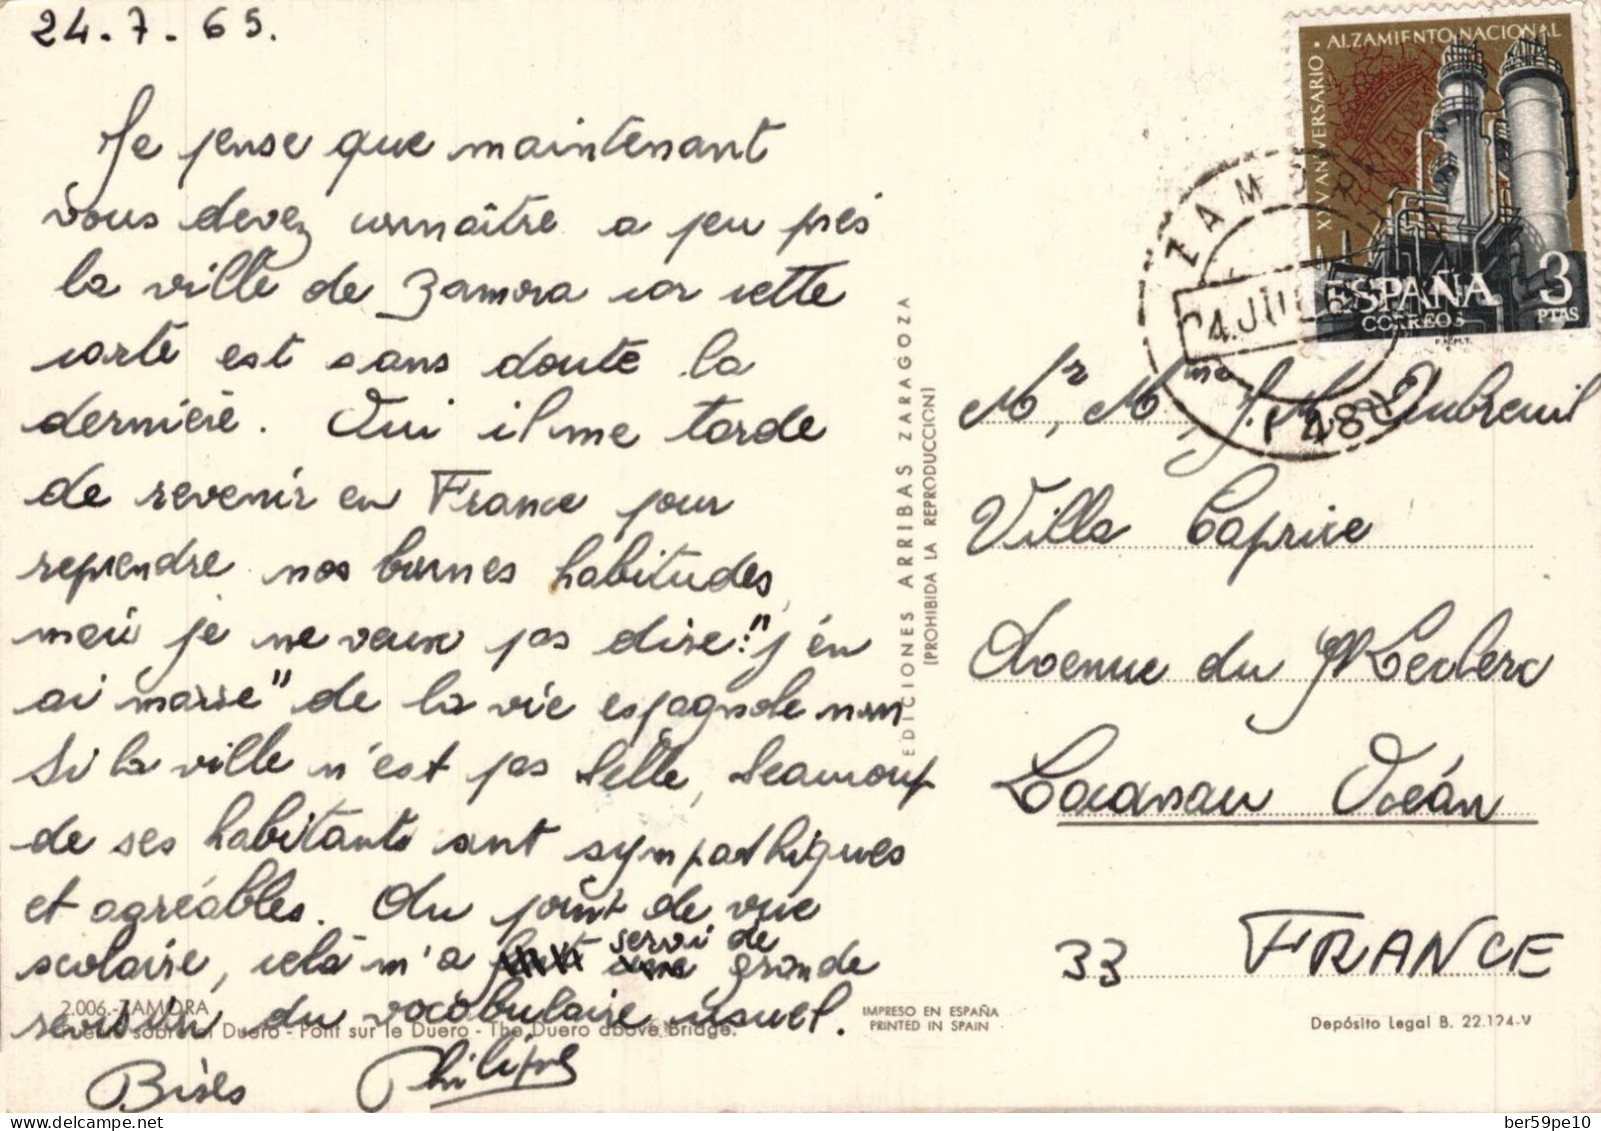 24-7-65.
Je pense que maintenant
vous devez connaître a peu près
la ville de Zamora car cette
carte est sans doute la
dernière. Oui il me tarde
de revenir en France pour
reprendre nos bonnes habitudes,
mais je ne veux pas dire: "j'én
ai marre" de la vie espagnole non
Si la ville n'est pas belle, beaucoup
de ses habitants sont sympathiques
et agréables. Du point de vue
scolaire, celà m'a servi de grande
revision du vocabulaire usuel.
Bises Philippe
2.006.-ZAMORA
Puente sobre el Duero - Pont sur le Duero - The Duero above Bridge.
EDICIONES ARRIBAS ZARAGOZA
(PROHIBIDA LA REPRODUCCION)
IMPRESO EN ESPAÑA
PRINTED IN SPAIN
XXV ANIVERSARIO • ALZAMIENTO NACIONAL
ESPAÑA 3
CORREOS PTAS
F.N.M.T.
ZAMORA
Mr, Mme, J. M. Dubreuil
Villa Caprice
Avenue du Gl Leclerc
Lacanau Océan
33 FRANCE
Depósito Legal B. 22.124-V
delcampe.net
ber59pe10